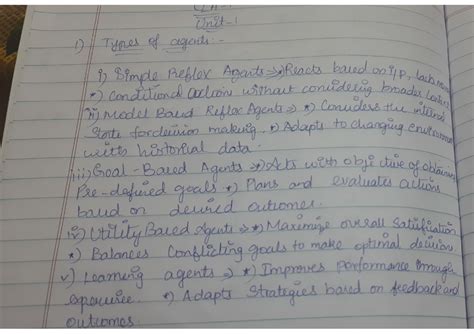 Unit-1
1) Types of agents:-
i) Simple Reflex Agents⇒*)Reacts based on i/p, lack
*) Conditional actions without considering broader
ii) Model Based Reflex Agents⇒ *) Considers the internal
State for decision making. *) Adapts to changing environment
with historial data.
iii) Goal-Based Agents⇒*)Acts with objective of obtaining
Pre-defined goals *) Plans and evaluates actions
based on desired outcomes.
iv) Utility Based Agents⇒ *) Maximize overall Satisfaction
*) Balances Conflicting goals to make optimal decision
v) Learning agents ⇒ *) Improves performance through
experience. *) Adapts Strategies based on feedback and
outcomes.